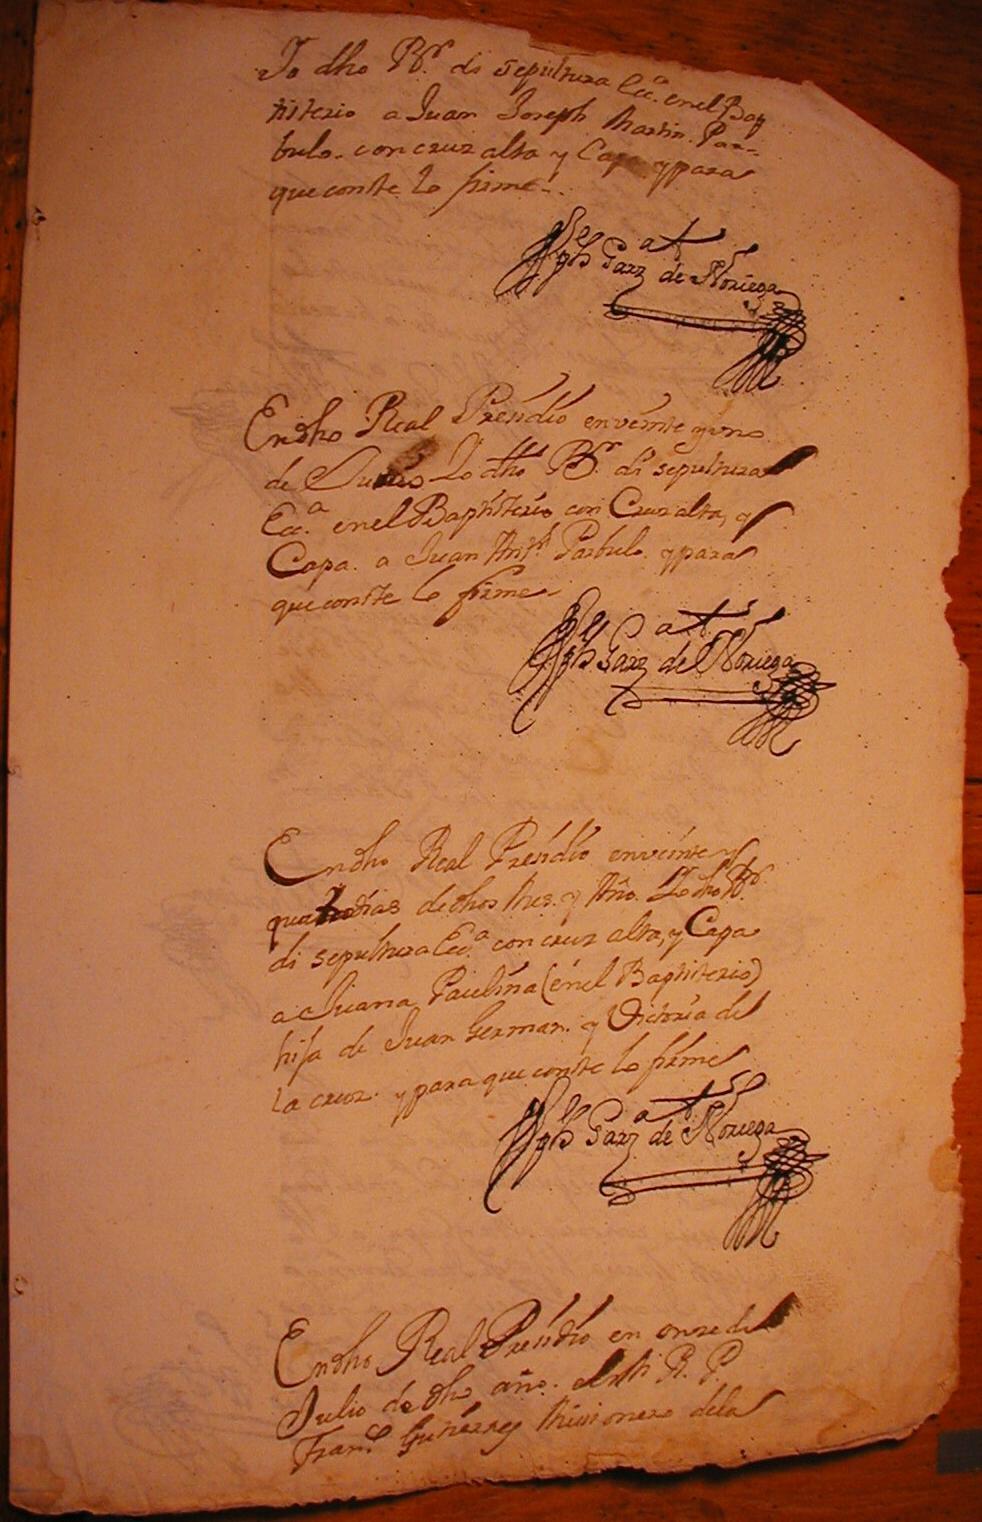 Yo dho Br. di sepultura Ecca. en el Bap
tisterio a Juan Joseph Martin Par-
bulo. con cruz alta y Capa y para
que conste lo firme.
Garza de Noriega
En dho Real Presidio en veinte y uno
de Yo dho Br. di sepultura
Ecca. en el Baptisterio con Cruz alta, y
Capa. a Juan Anto. Parbulo. y para
que conste lo firme-
Garza de Noriega
En dho Real Presidio en veinte y
quatro dias de dhos Mes. y Año. Yo dho Br.
di sepultura Ecca. con cruz alta, y Capa
a Juana Paulina (en el Baptisterio)
hija de Juan German. y Victoria de
la cruz. y para que conste lo firme
Garza de Noriega
En dho Real Presidio en onze de
Julio de dho año. el R. P.
Franco. Gutierrez Missionero dela